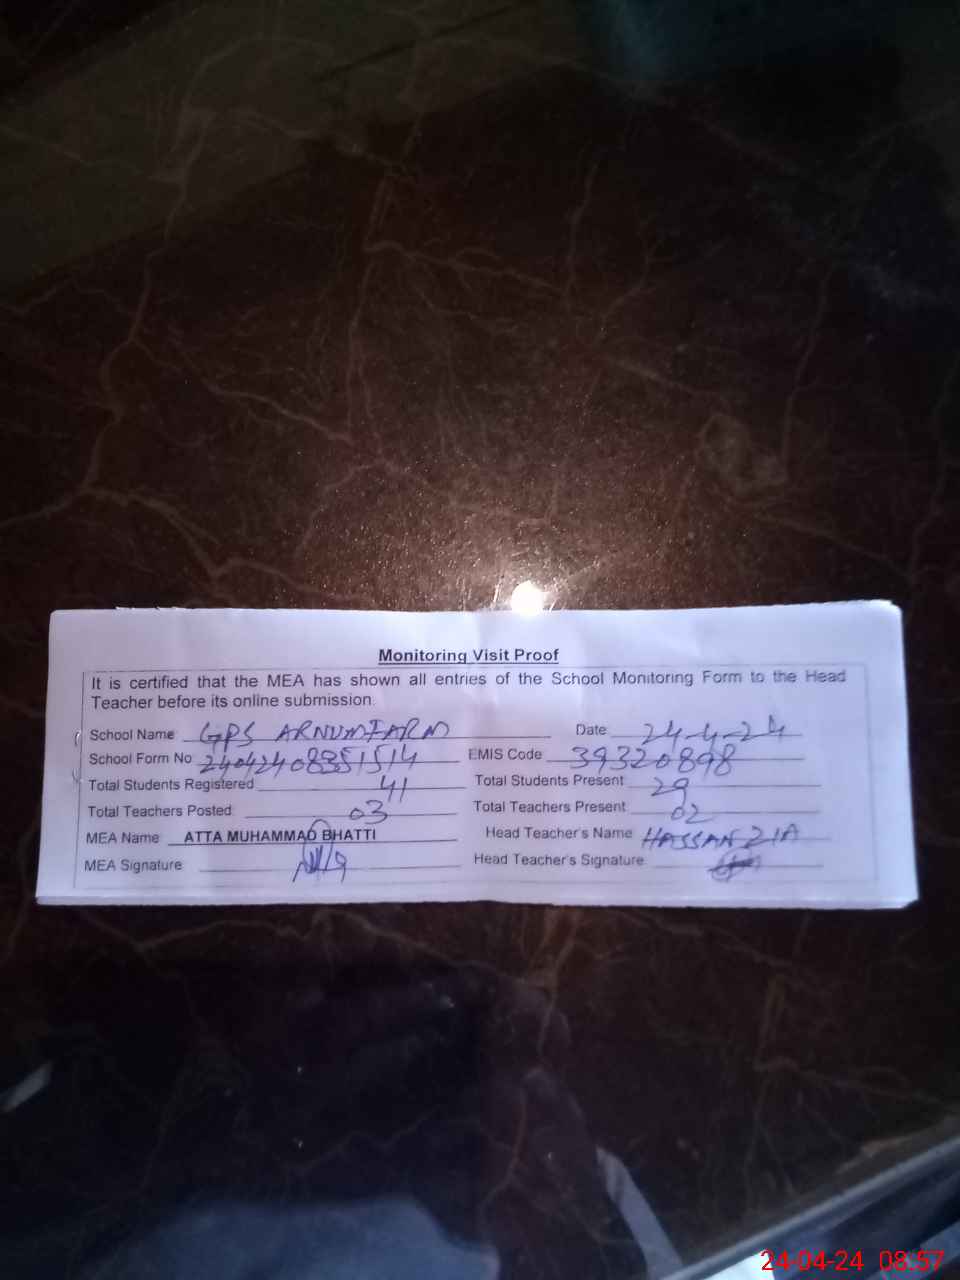 Monitoring Visit Proof
It is certified that the MEA has shown all entries of the School Monitoring Form to the Head
Teacher before its online submission.
School Name GPS ARNUMFARM Date 24-4-24
School Form No 24042408351514 EMIS Code 39320898
Total Students Registered 41 Total Students Present 29
Total Teachers Posted 03 Total Teachers Present 02
MEA Name ATTA MUHAMMAD BHATTI Head Teacher's Name HASSAN ZIA
MEA Signature Head Teacher's Signature
24-04-24 08:57